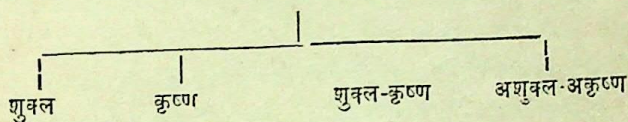 शुक्ल कृष्ण शुक्ल-कृष्ण अशुक्ल-अकृष्ण